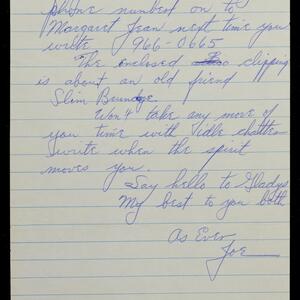 phone number on to
Margaret Jean next time you
write 966-0665
"The enclosed clipping
is about an old friend
Slim Brundage.
Won't take any more of
you time with Idle chatter
write when the spirit
moves you.
Say hello to Gladys
My best to you both
As Ever
Joe